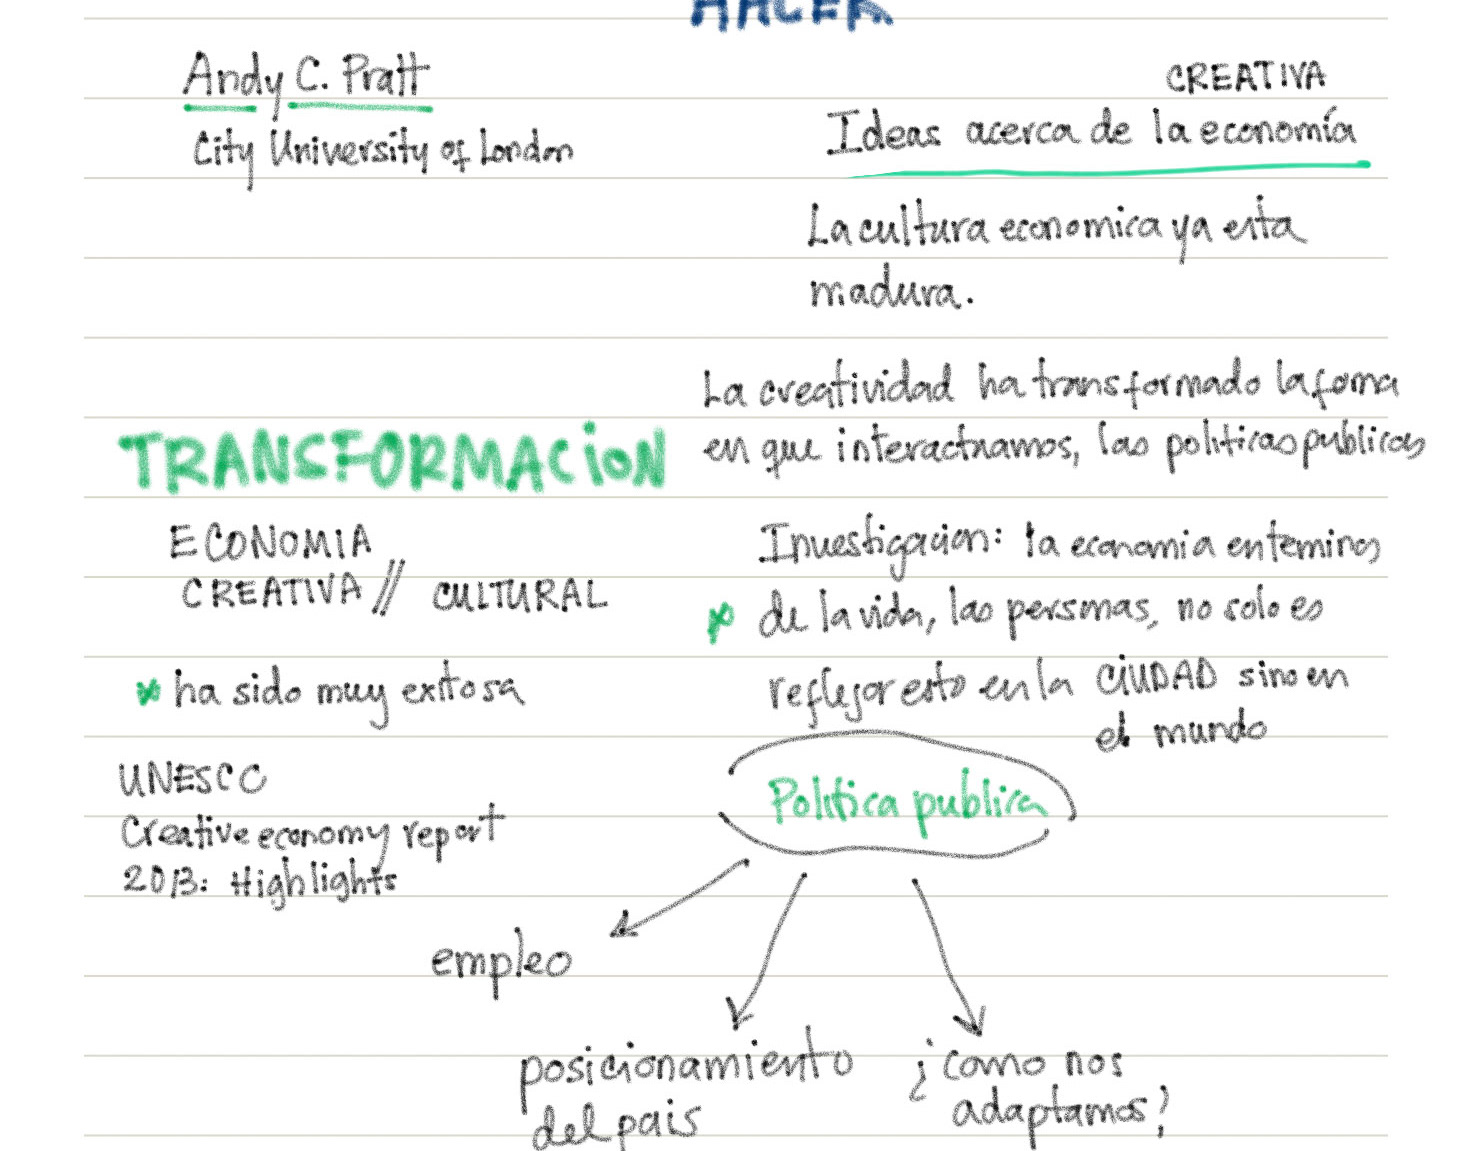 HACER
Andy C. Pratt
City University of London
CREATIVA
Ideas acerca de la economía
La cultura economica ya esta
madura.
La creatividad ha transformado la forma
en que interactuamos, las politicas publicas
TRANSFORMACION
ECONOMIA
CREATIVA // CULTURAL
* ha sido muy exitosa
UNESCO
Creative economy report
2013: Highlights
Investigacion: la economia en terminos
* de la vida, las personas, no solo es
reflejar esto en la CIUDAD sino en
el mundo
Politica publica
empleo
posicionamiento
del pais
¿como nos
adaptamos?